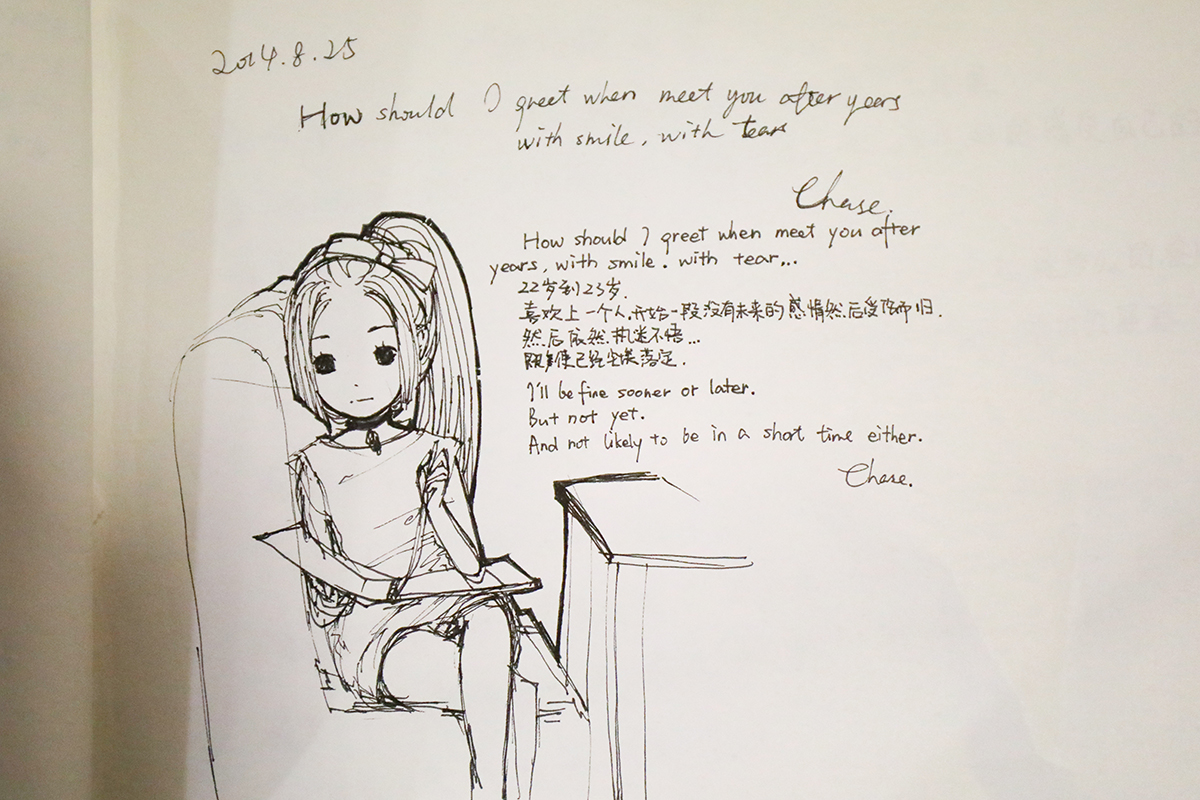 2014.8.25
How should I greet when meet you after years
with smile, with tears
Chase.
How should I greet when meet you after
years, with smile. with tear...
22岁到23岁.
喜欢上一个人,开始一段没有未来的感情然后受伤而归.
然后依然执迷不悟...
即使已经尘埃落定.
I'll be fine sooner or later.
But not yet.
And not likely to be in a short time either.
Chase.